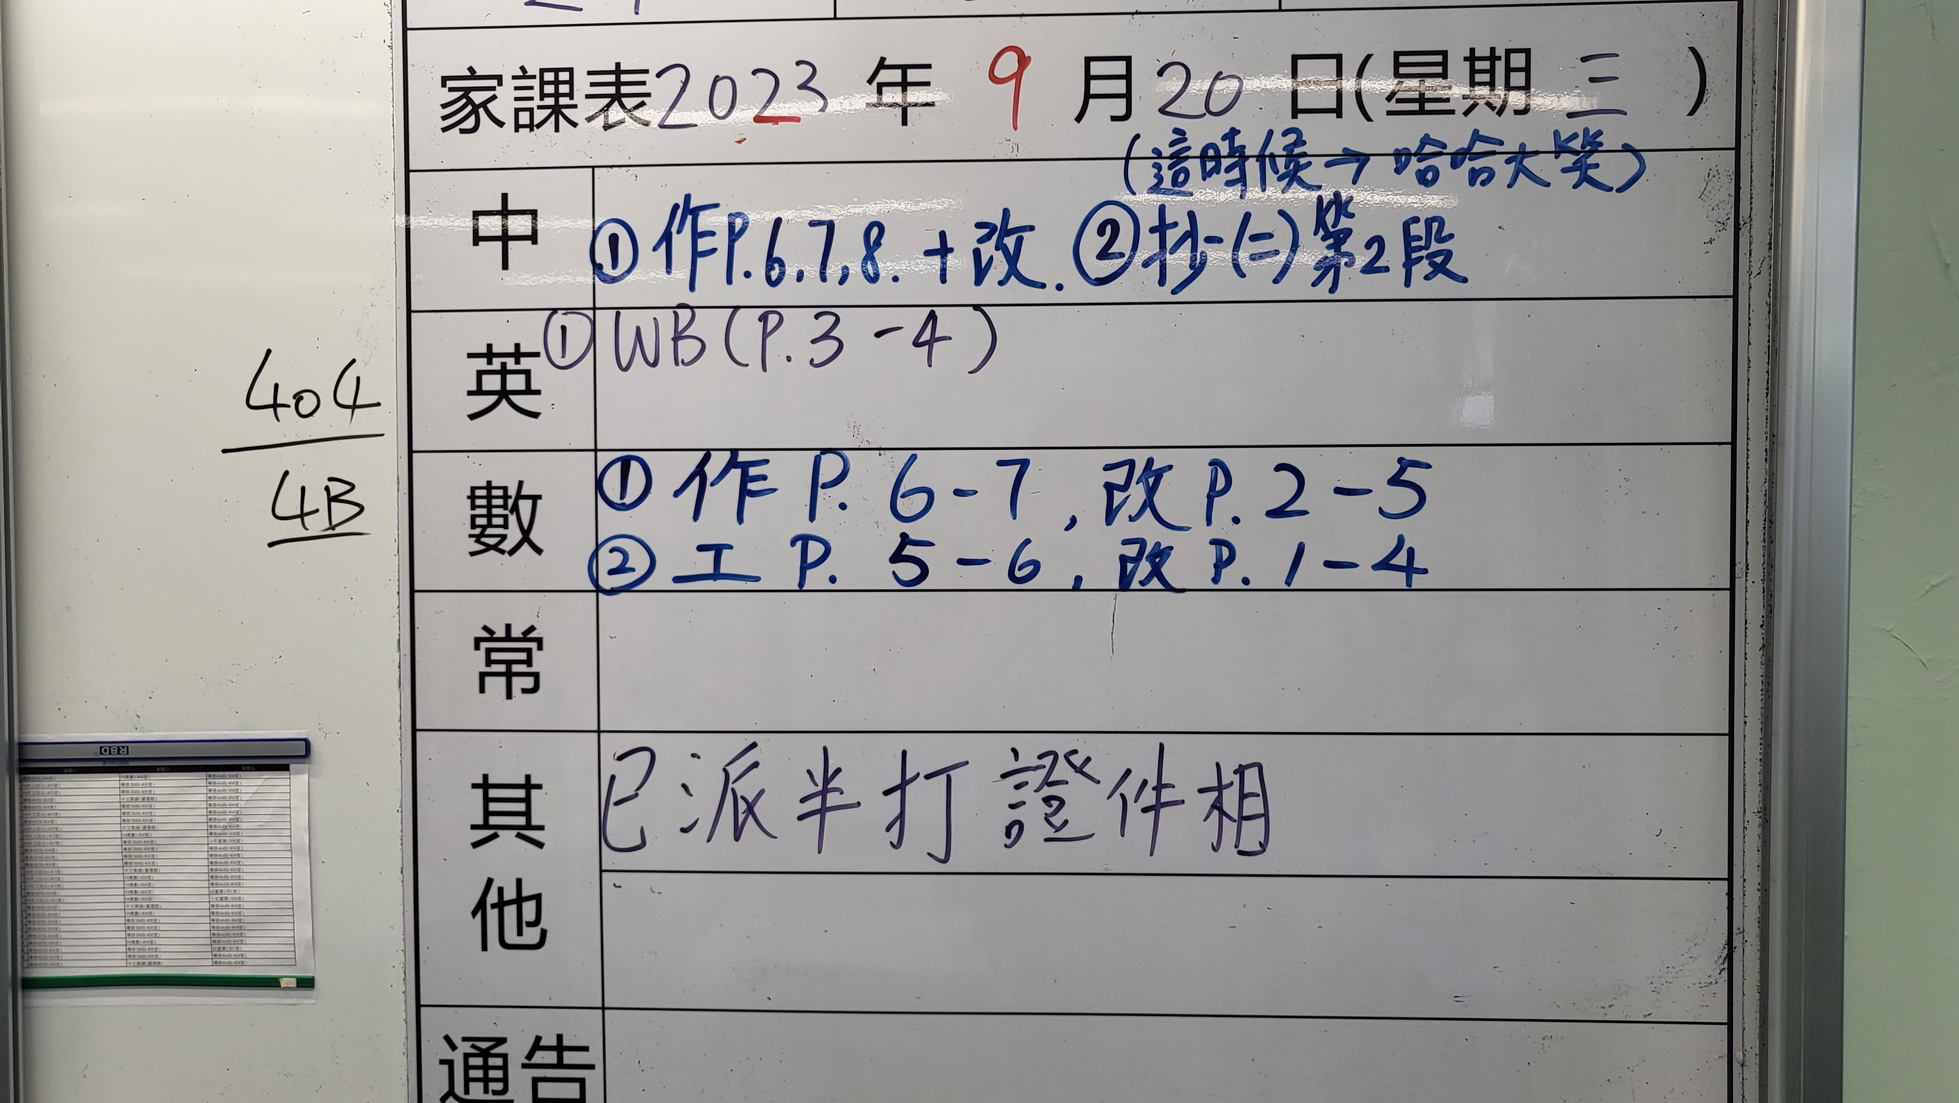 家課表2023年9月20日(星期三)
(這時候→哈哈大笑)
中 ①作P.6,7,8.+改.②抄-(二)第2段
英 ①WB(P.3-4)
404
4B
數 ①作P.6-7,改P.2-5
②工P.5-6,改P.1-4
常
其他 已派半打證件相
通告
RBD